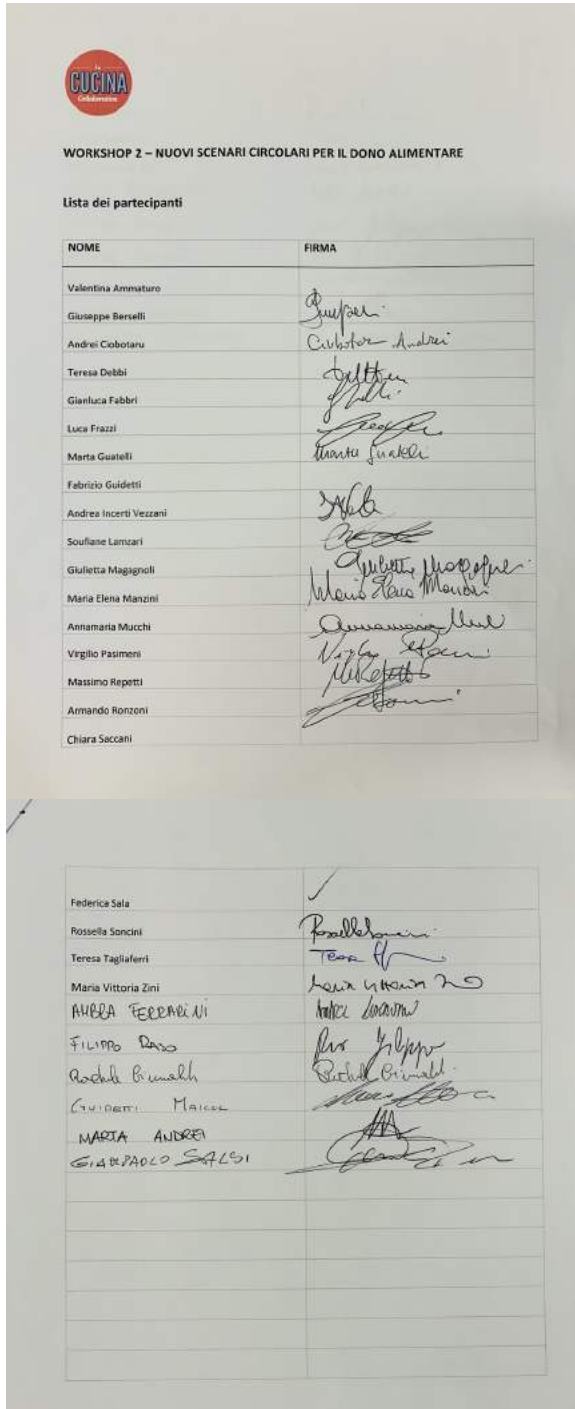 La
CUCINA
Collaborativa
WORKSHOP 2 – NUOVI SCENARI CIRCOLARI PER IL DONO ALIMENTARE
Lista dei partecipanti
NOME FIRMA
Valentina Ammaturo
Giuseppe Berselli
Andrei Ciobotaru Ciobotaru Andrei
Teresa Debbi
Gianluca Fabbri
Luca Frazzi
Marta Guatelli Marta Guatelli
Fabrizio Guidetti
Andrea Incerti Vezzani
Soufiane Lamzari
Giulietta Magagnoli Giulietta Magagnoli
Maria Elena Manzini Maria Elena Manzini
Annamaria Mucchi Annamaria
Virgilio Pasimeni
Massimo Repetti M Repetti
Armando Ronzoni
Chiara Saccani
Federica Sala
Rossella Soncini Rossella Soncini
Teresa Tagliaferri
Maria Vittoria Zini Maria Vittoria
AMBRA FERRARINI
FILIPPO RASO Filippo
Rachele Grimaldi Rachele Grimaldi
GUIDETTI MAICOL
MARTA ANDREI
GIANPAOLO SALSI